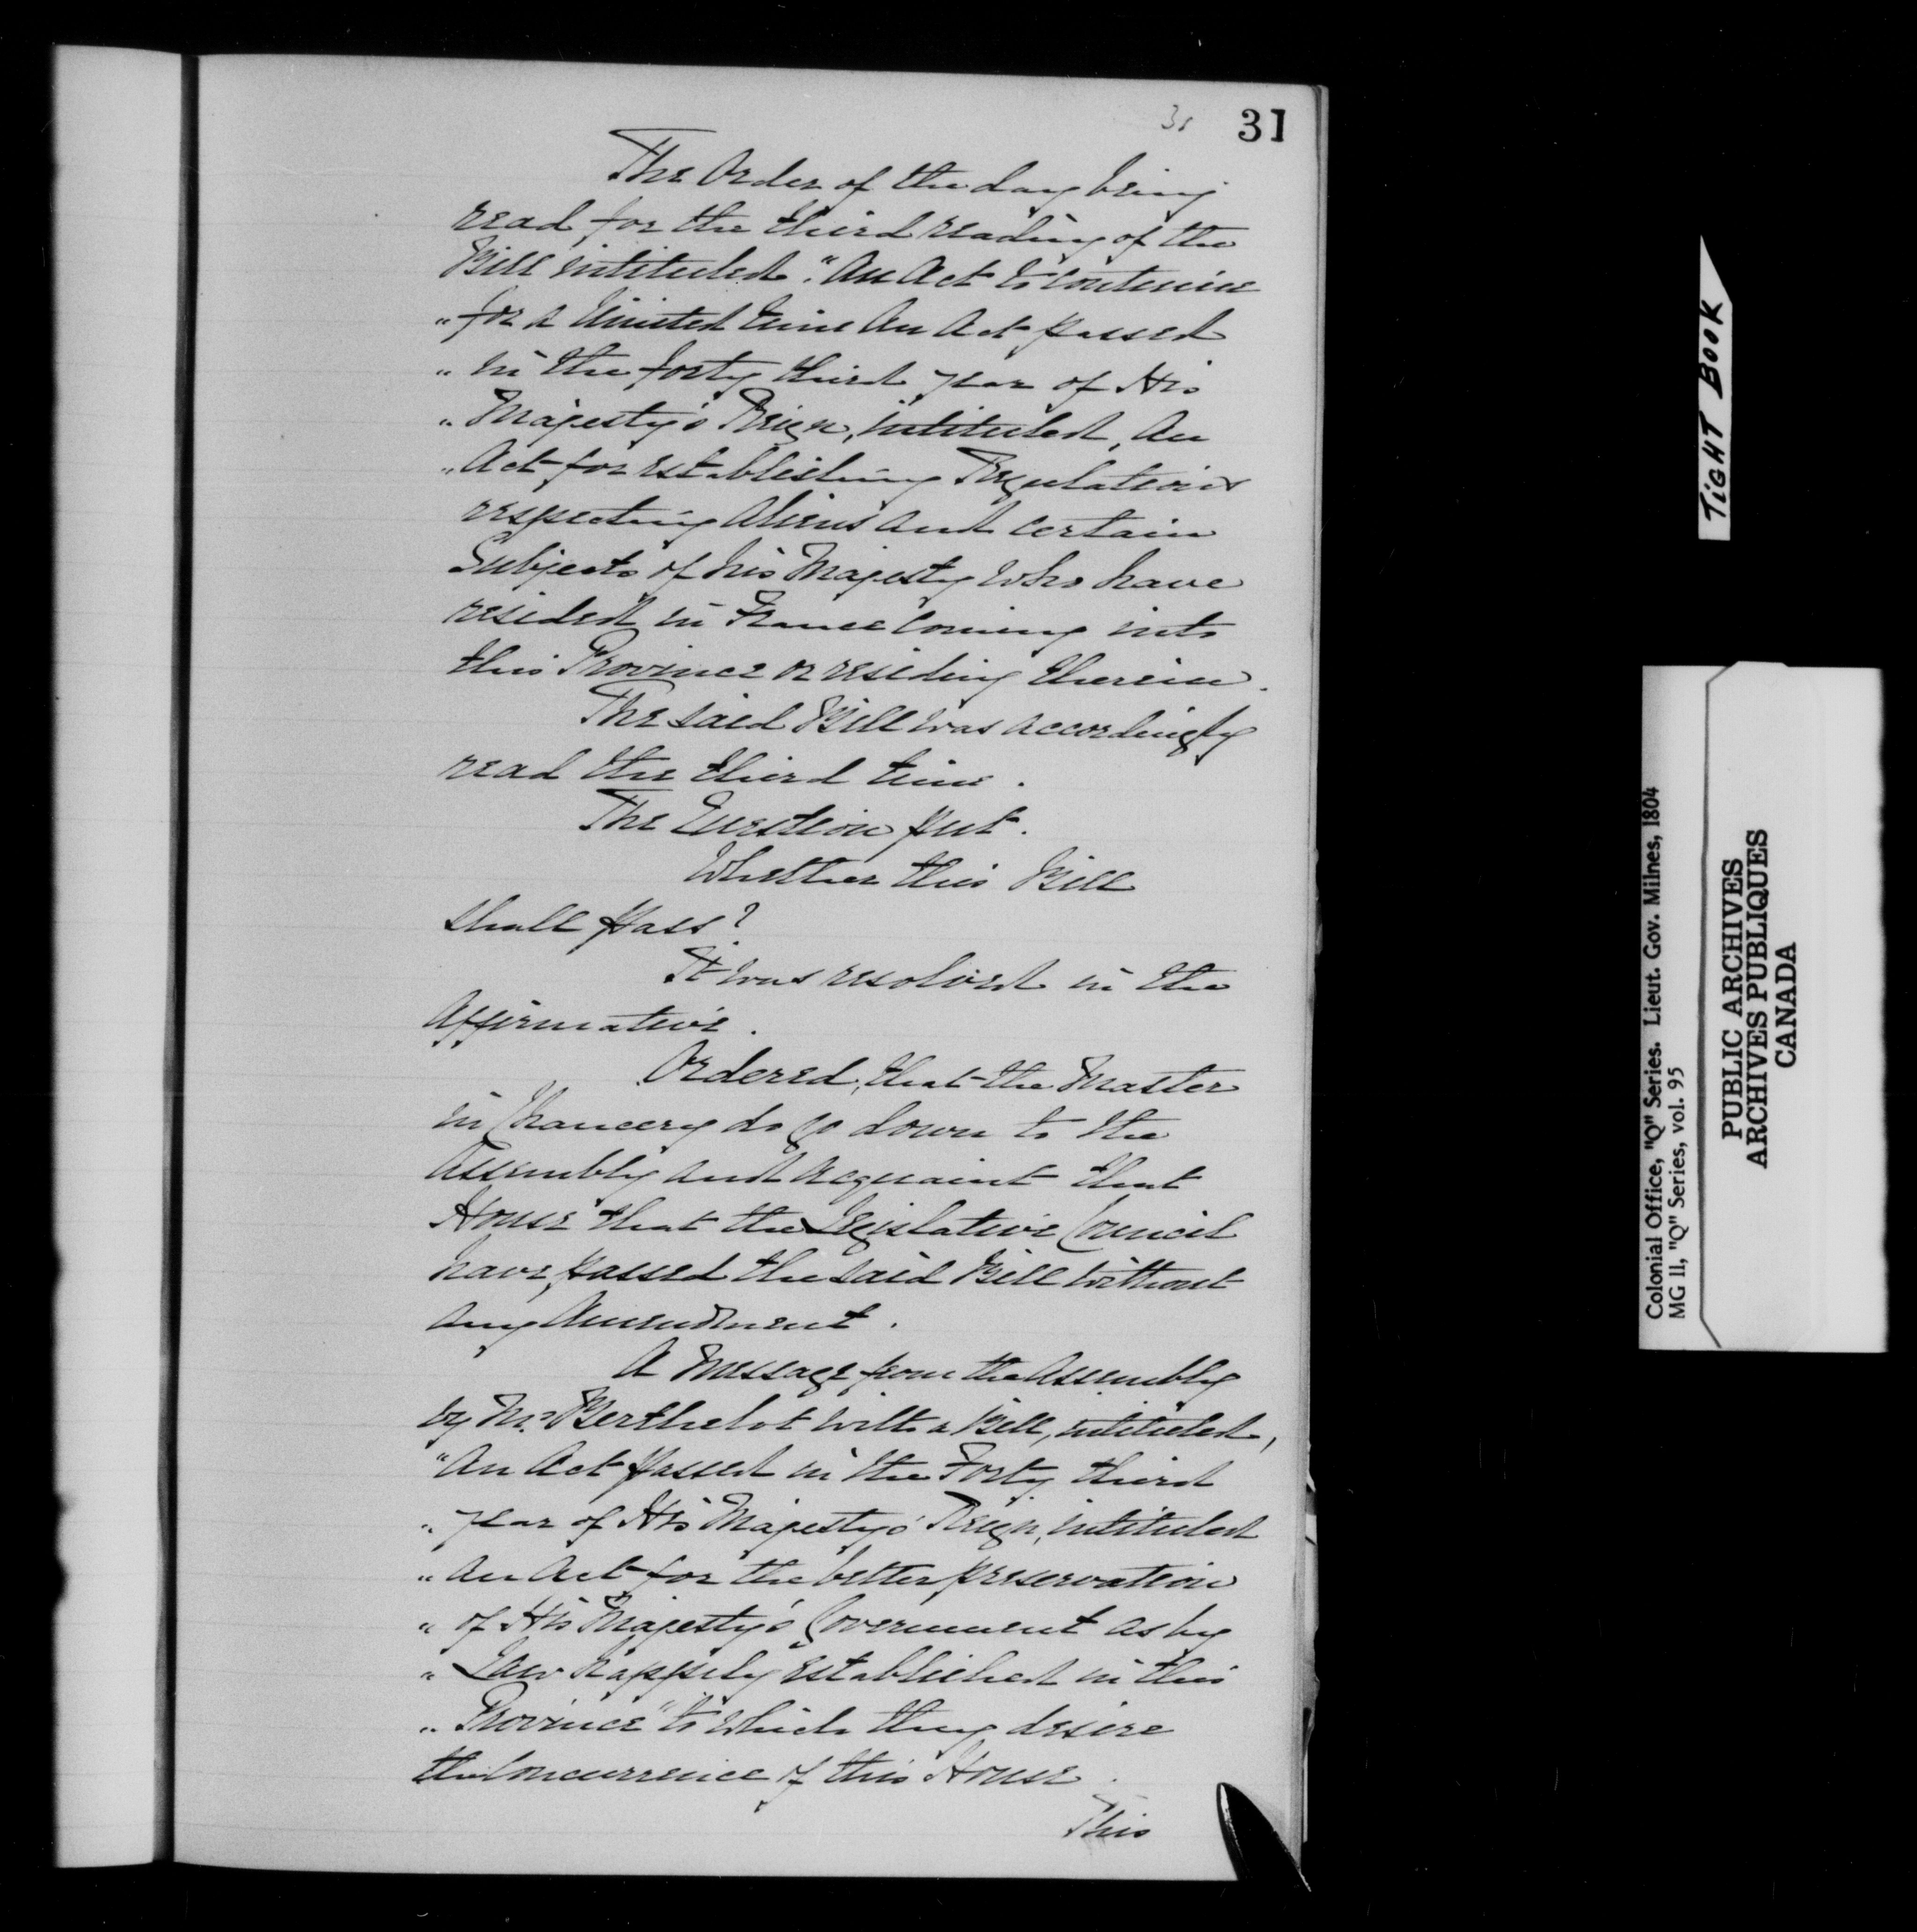 31 31
The Order of the day being
read for the third reading of the
Bill intituled "An Act to continue
" for a limited time An Act passed
" in the forty third year of His
" Majesty's Reign, intituled, An
" Act for establishing Regulations
respecting Aliens and certain
Subjects of his Majesty who have
resided in France coming into
this Province or residing therein.
The said Bill was accordingly
read the third time.
The Question put.
Whether this Bill
shall pass?
It was resolved in the
Affirmative.
Ordered, that the Master
in Chancery do go down to the
Assembly and acquaint that
House that the Legislative Council
have passed the said Bill without
any Amendment.
A Message from the Assembly
by Mr. Berthelot with a Bill, intituled,
"An Act passed in the Forty third
" year of His Majesty's Reign, intituled
" An Act for the better preservation
" of His Majesty's Government as by
" Law happily established in this
" Province" to which they desire
the Concurrence of this House.
This
TIGHT BOOK
Colonial Office, "Q" Series. Lieut. Gov. Milnes, 1804
MG 11, "Q" Series, vol. 95
PUBLIC ARCHIVES
ARCHIVES PUBLIQUES
CANADA